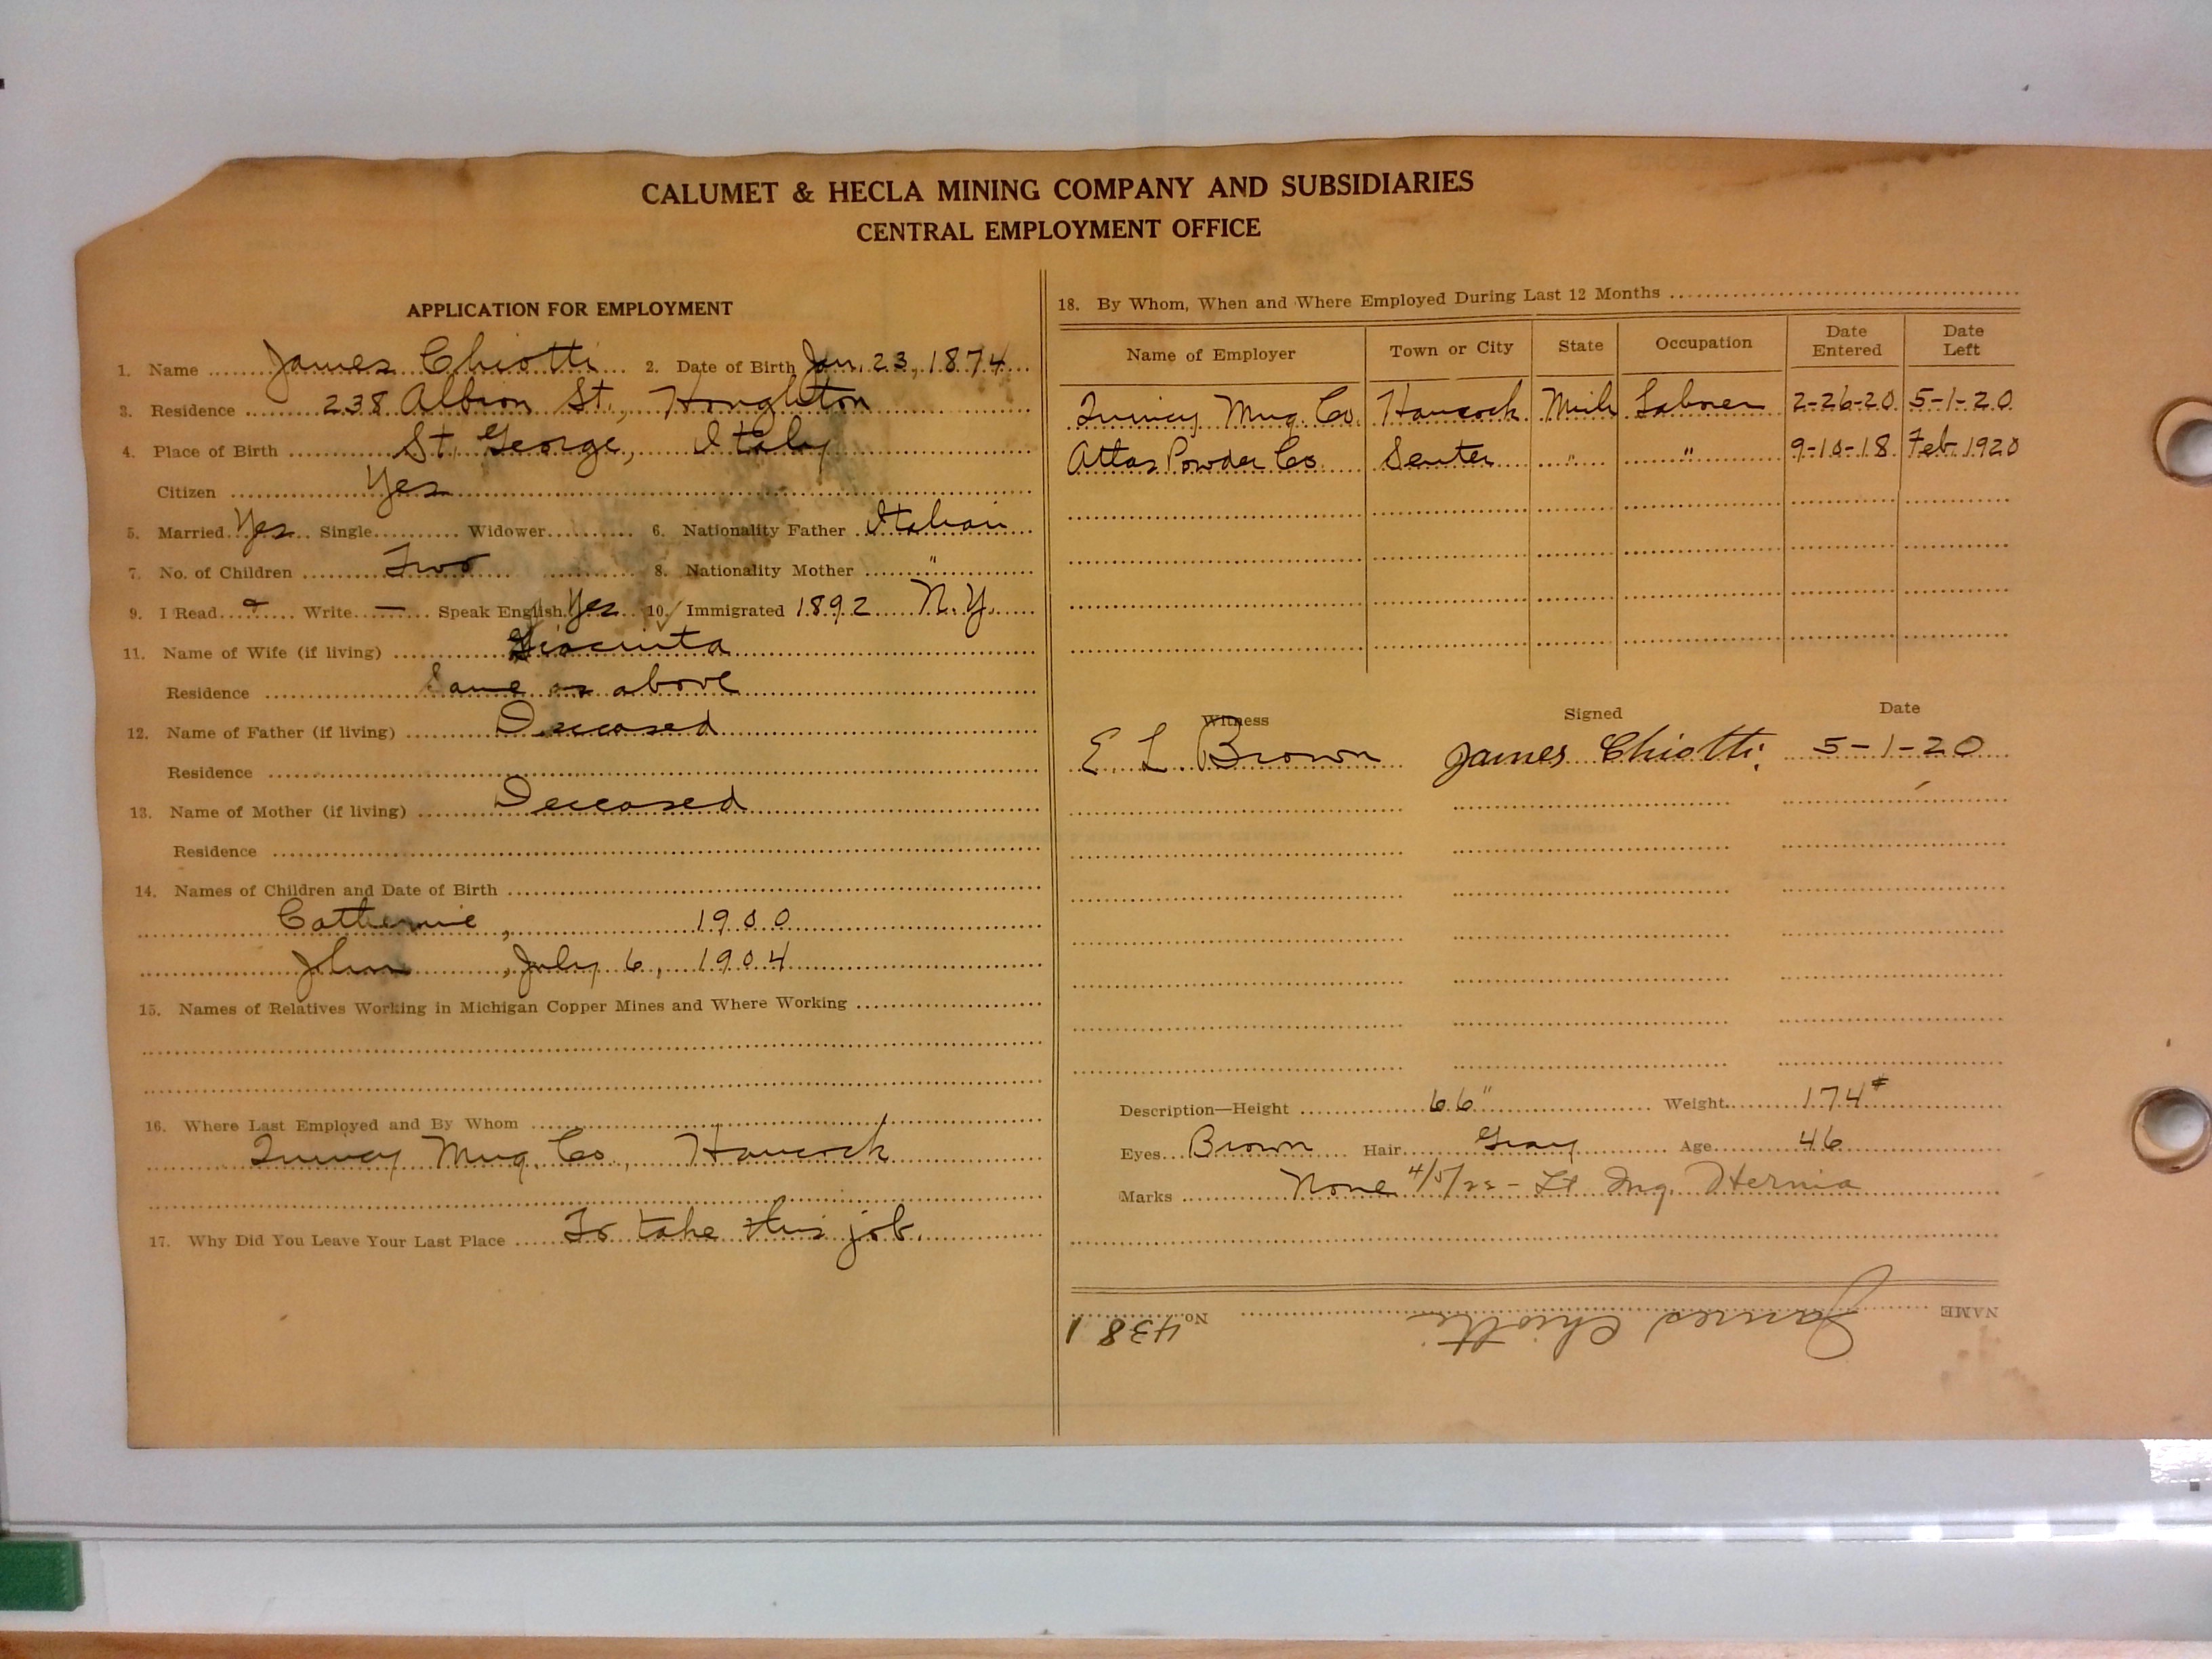 CALUMET & HECLA MINING COMPANY AND SUBSIDIARIES
CENTRAL EMPLOYMENT OFFICE
APPLICATION FOR EMPLOYMENT
1. Name James Chiotti 2. Date of Birth Jan. 23, 1874
3. Residence 238 Albion St., Houghton
4. Place of Birth St. George, Italy
Citizen Yes
5. Married Yes Single Widower 6. Nationality Father Italian
7. No. of Children Two 8. Nationality Mother "
9. I Read Write — Speak English Yes 10. Immigrated 1892 N.Y.
11. Name of Wife (if living) Giacinta
Residence Same as above
12. Name of Father (if living) Deceased
Residence
13. Name of Mother (if living) Deceased
Residence
14. Names of Children and Date of Birth
Catherine, 1900
John, July 6, 1904
15. Names of Relatives Working in Michigan Copper Mines and Where Working
16. Where Last Employed and By Whom
Quincy Mng. Co., Hancock
17. Why Did You Leave Your Last Place To take this job.
18. By Whom, When and Where Employed During Last 12 Months
Name of Employer Town or City State Occupation Date Entered Date Left
Quincy Mng. Co. Hancock Mich Laborer 2-26-20 5-1-20
Atlas Powder Co. Senter " " 9-10-18 Feb. 1920
Witness Signed Date
E. L. Brown James Chiotti 5-1-20
Description—Height 66" Weight 174#
Eyes Brown Hair Gray Age 46
Marks None 4/5/22 - Lt Ing. Hernia
NAME James Chiotti No. 4381